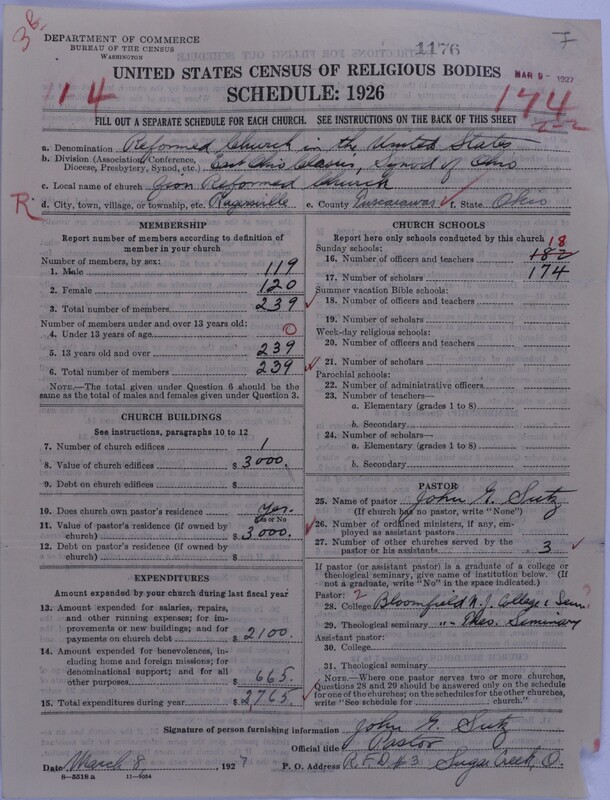 38
DEPARTMENT OF COMMERCE
BUREAU OF THE CENSUS
WASHINGTON
1176
I
UNITED STATES CENSUS OF RELIGIOUS BODIES
MAR 9 - 1927
SCHEDULE: 1926
114
174
2-2
FILL OUT A SEPARATE SCHEDULE FOR EACH CHURCH. SEE INSTRUCTIONS ON THE BACK OF THIS SHEET
a. Denomination Reformed Church in the United States
b. Division (Association, Conference, Diocese, Presbytery, Synod, etc.) East Ohio Classis, Synod of Ohio
c. Local name of church Zion Reformed Church
R d. City, town, village, or township, etc. Ragersville e. County Tuscarawas f. State Ohio
MEMBERSHIP
Report number of members according to definition of member in your church
Number of members, by sex:
1. Male 119
2. Female 120
3. Total number of members 239
Number of members under and over 13 years old:
4. Under 13 years of age 0
5. 13 years old and over 239
6. Total number of members 239
NOTE.—The total given under Question 6 should be the same as the total of males and females given under Question 3.
CHURCH BUILDINGS
See instructions, paragraphs 10 to 12
7. Number of church edifices 1
8. Value of church edifices $ 3000.
9. Debt on church edifices $
10. Does church own pastor's residence? Yes.
Yes or No
11. Value of pastor's residence (if owned by church) $ 3000.
12. Debt on pastor's residence (if owned by church) $
EXPENDITURES
Amount expended by your church during last fiscal year
13. Amount expended for salaries, repairs, and other running expenses; for improvements or new buildings; and for payments on church debt $ 2100.
14. Amount expended for benevolences, including home and foreign missions; for denominational support; and for all other purposes $ 665.
15. Total expenditures during year $ 2765.
CHURCH SCHOOLS
Report here only schools conducted by this church
Sunday schools: 18
16. Number of officers and teachers 182
17. Number of scholars 174
Summer vacation Bible schools:
18. Number of officers and teachers
19. Number of scholars
Week-day religious schools:
20. Number of officers and teachers
21. Number of scholars
Parochial schools:
22. Number of administrative officers
23. Number of teachers—
a. Elementary (grades 1 to 8)
b. Secondary
24. Number of scholars—
a. Elementary (grades 1 to 8)
b. Secondary
PASTOR
25. Name of pastor John G. Sutz
(If church has no pastor, write "None")
26. Number of ordained ministers, if any, employed as assistant pastors
27. Number of other churches served by the pastor or his assistants 3
If pastor (or assistant pastor) is a graduate of a college or theological seminary, give name of institution below. (If not a graduate, write "No" in the space indicated.)
Pastor: 2
28. College Bloomfield N.J. College & Sem.
29. Theological seminary " - Theo. Seminary
Assistant pastor:
30. College
31. Theological seminary
NOTE.—Where one pastor serves two or more churches, Questions 28 and 29 should be answered only on the schedule for one of the churches; on the schedules for the other churches, write "See schedule for ........ church."
Signature of person furnishing information John G. Sutz
Official title Pastor
Date March 8, 1927 P. O. Address R.F.D. #3 Sugar Creek, O.
8—5518 a 11—9054